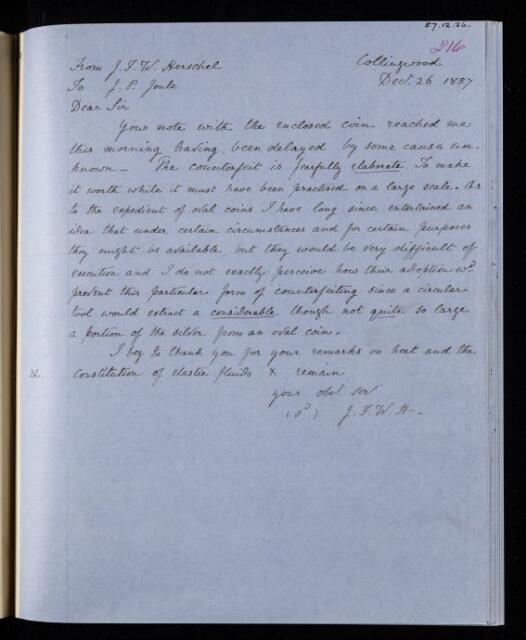 57.12.26.
216
From J. F. W. Herschel Collingwood
To J. P. Joule Decr. 26 1857
Dear Sir
Your note with the enclosed coin reached me
this morning having been delayed by some causes un-
known – The counterfeit is fearfully elaborate. To make
it worth while it must have been practised on a large scale. As
to the expedient of oval coins I have long since entertained an
idea that under certain circumstances and for certain purposes
they might be available. but they would be very difficult of
execution and I do not exactly perceive how their adoption wd.
prevent this particular form of counterfeiting since a circular
tool would extract a considerable though not quite so large
a portion of the silver from an oval coin.
I beg to thank you for your remarks on heat and the
constitution of elastic fluids & remain
your obt. sert
(sd) J. F. W. H –